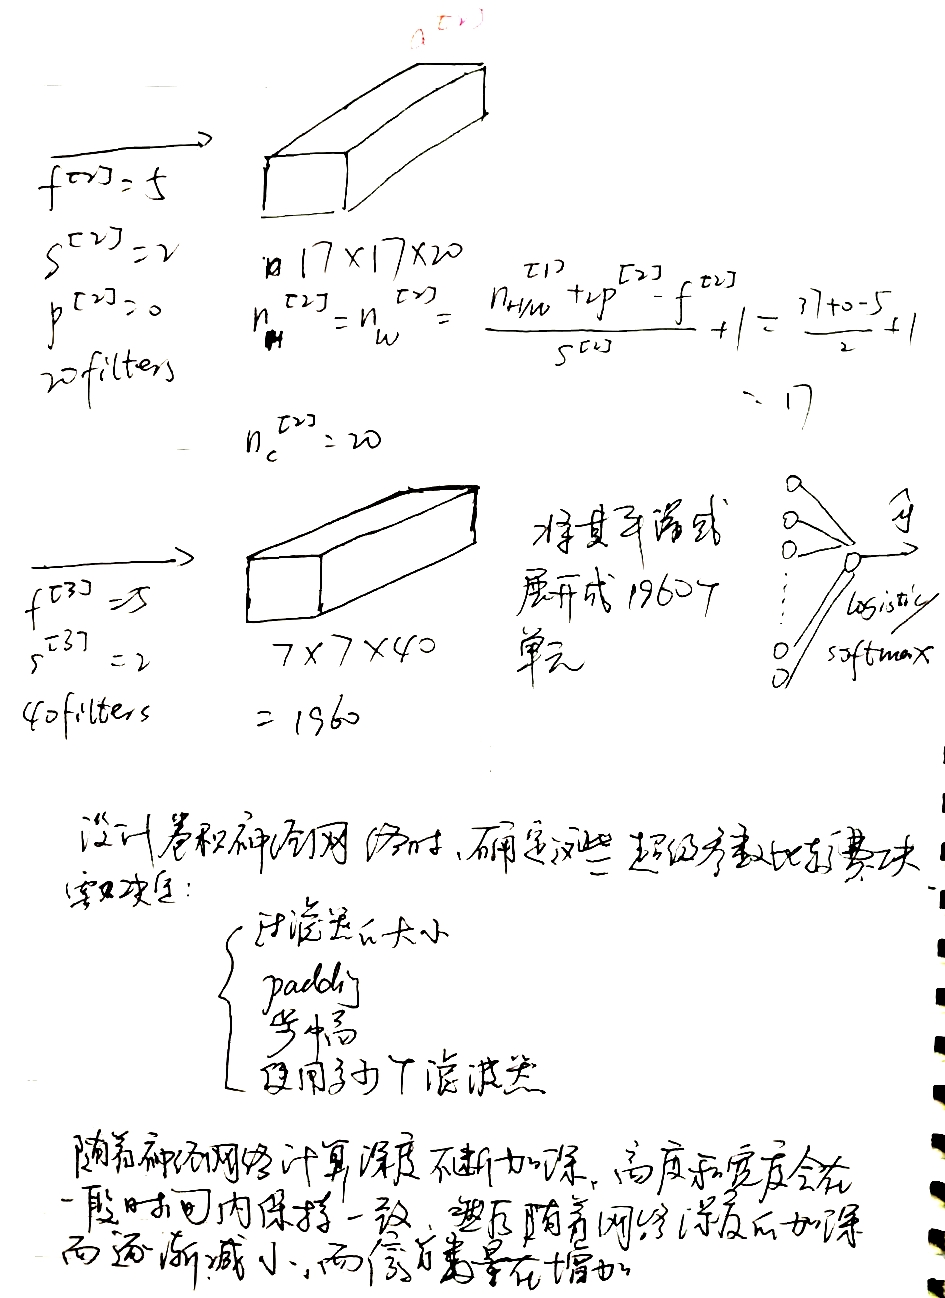 a^[2]
f^[2] = 5
s^[2] = 2
p^[2] = 0
20 filters
17 × 17 × 20
n_H^[2] = n_W^[2] = (n_H/W^[1] + 2p^[2] - f^[2]) / s^[2] + 1 = (37+0-5)/2 + 1
= 17
n_c^[2] = 20
f^[3] = 5
s^[3] = 2
40 filters
7 × 7 × 40
= 1960
将其平滑或
展开成 1960个
单元
ŷ
logistic/
softmax
设计卷积神经网络时,确定这些超级参数比较费决
需要决定:
过滤器的大小
padding
步幅
使用多少个滤波器
随着神经网络计算深度不断加深,高度和宽度会在
一段时间内保持一致,然后随着网络深度的加深
而逐渐减小,而信道数量在增加